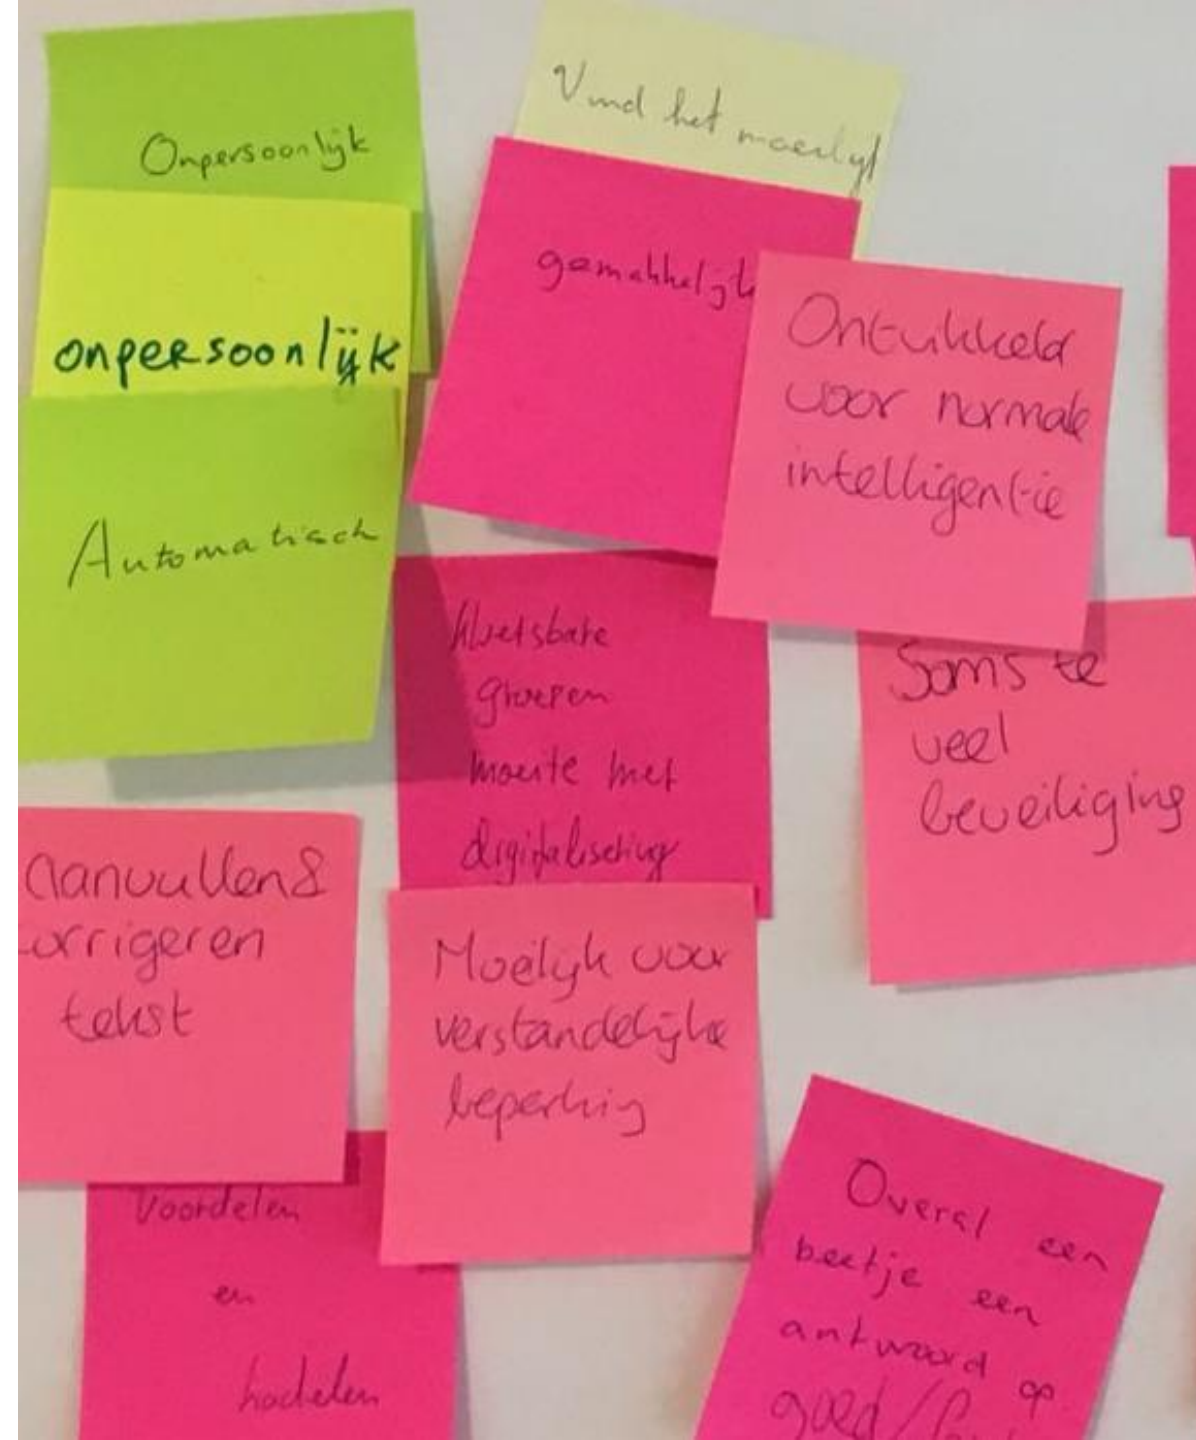 Onpersoonlijk
onpersoonlijk
Automatisch
Vind het moeilijk
gemakkelijk
Ontwikkeld
voor normale
intelligentie
Kwetsbare
groepen
moeite met
digitalisering
Soms te
veel
beveiliging
aanvullen &
corrigeren
tekst
Moeilijk voor
verstandelijke
beperking
Voordelen
en
nadelen
Overal een
beetje een
antwoord op
goed/